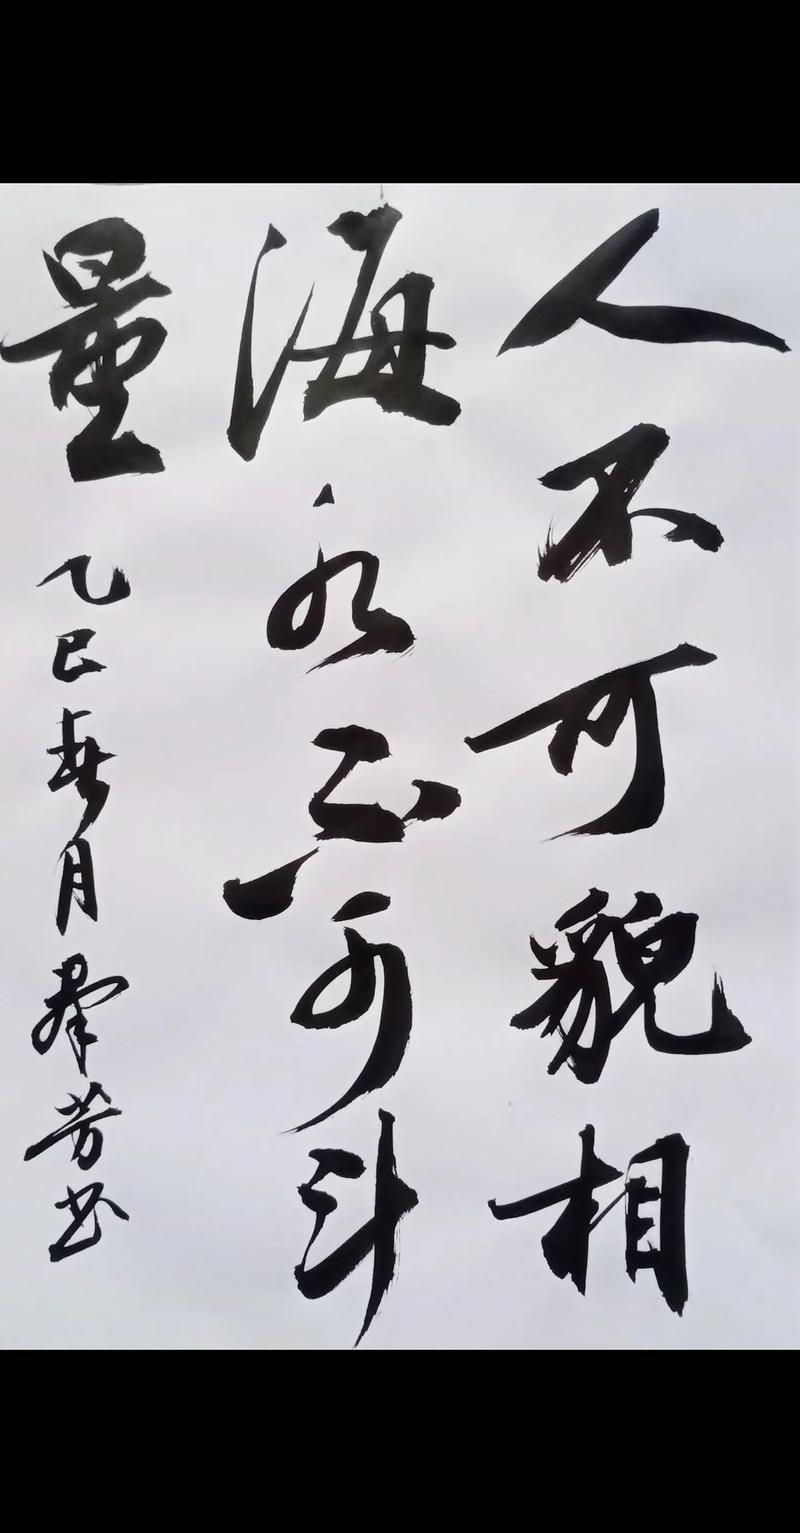 人不可貌相
海水不可斗
量
乙巳春月羣芳书